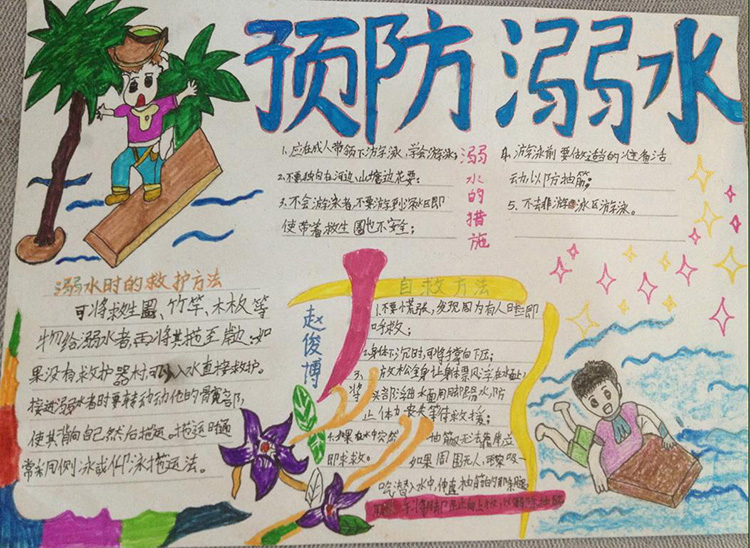 预防溺水
溺水的措施
1、应在成人带领下游泳,学会游泳;
2、不要独自在河边、山塘边玩耍;
3、不会游泳者,不要游到深水区,即
使带着救生圈也不安全;
4、游泳前要做适当的准备活
动,以防抽筋;
5、不去非游泳区游泳。
溺水时的救护方法
可将救生圈、竹竿、木板等
物给溺水者,再将其拖至岸边;如
果没有救护器材可入水直接救护。
接近溺水者时要转动他的髋部,
使其背向自己然后拖运。拖运时通
常采用侧泳或仰泳拖运法。
赵俊博
自救方法
1、不要慌张,发现周围有人时立即
呼救;
2、身体下沉时,可将手掌向下压;
3、放松全身,让身体漂浮在水面上,
将头部浮出水面,用脚踢水,防
止体力丧失,等待救援;
4、如果在水中突然抽筋,无法靠岸,立
即求救。如果周围无人,深吸一
口气潜入水中,伸直抽筋的那条腿,